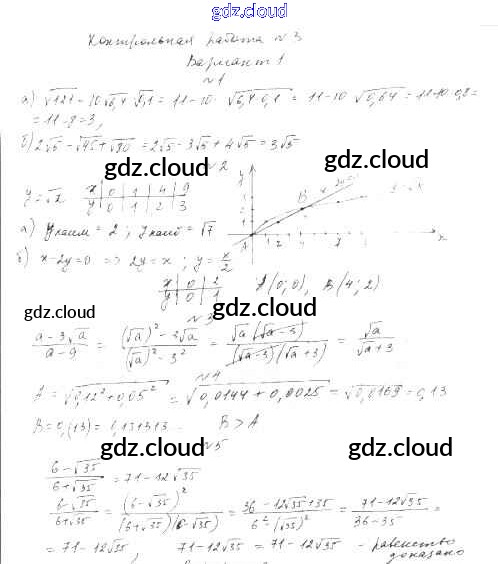 gdz.cloud
Контрольная работа №3
Вариант 1
№1
а) √121 - 10√6,4 · √0,1 = 11 - 10 · √6,4·0,1 = 11-10 √0,64 = 11-10·0,8 =
= 11-8=3;
б) 2√5 - √45 + √80 = 2√5 - 3√5 + 4√5 = 3√5
gdz.cloud gdz.cloud
№2
y=√x
x 0 1 4 9
y 0 1 2 3
а) yнаим = 2; yнаиб = √7
б) x-2y=0 => 2y=x; y = x/2
x 0 2
y 0 1
A(0;0), B(4;2)
gdz.cloud
№3
(a-3√a)/(a-9) = ((√a)²-3√a)/((√a)²-3²) = √a(√a-3)/((√a-3)(√a+3)) = √a/(√a+3)
gdz.cloud gdz.cloud
№4
A = √0,12²+0,05² = √0,0144+0,0025 = √0,0169 = 0,13
B=0,(13) = 0,131313... B > A
gdz.cloud gdz.cloud
№5
(6-√35)/(6+√35) = 71-12√35
(6-√35)/(6+√35) = (6-√35)²/((6+√35)(6-√35)) = (36-12√35+35)/(6²-(√35)²) = (71-12√35)/(36-35) =
= 71-12√35; 71-12√35 = 71-12√35 - равенство
доказано
gdz.cloud gdz.cloud